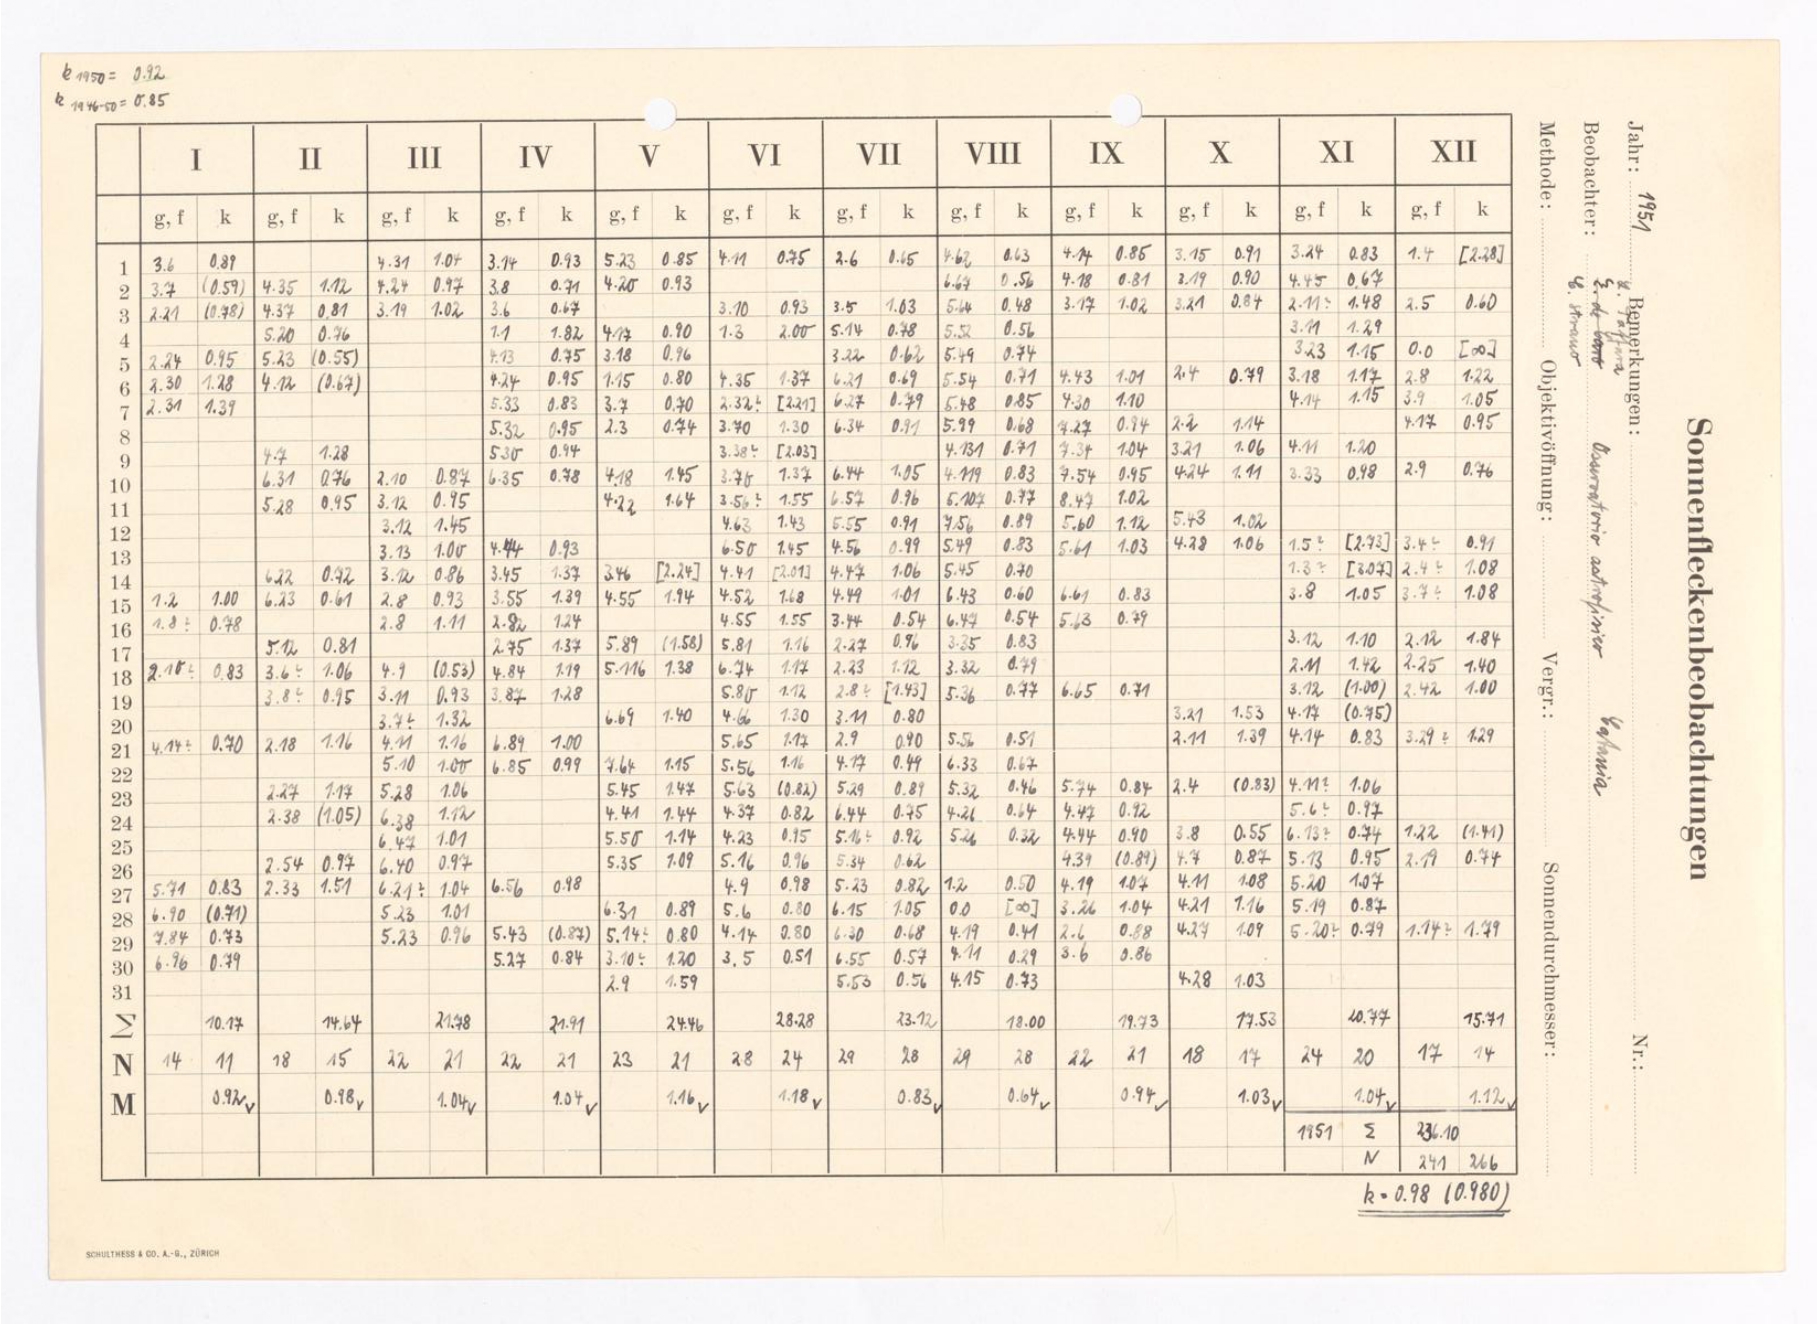 k 1950 = 0.92
k 1946-50 = 0.85
I II III IV V VI VII VIII IX X XI XII
g, f k g, f k g, f k g, f k g, f k g, f k g, f k g, f k g, f k g, f k g, f k g, f k
1 3.6 0.89 4.31 1.07 3.14 0.93 5.23 0.85 4.11 0.75 2.6 0.65 4.62 0.63 4.14 0.85 3.15 0.91 3.24 0.83 1.4 [2.28]
2 3.7 (0.59) 4.35 1.12 4.24 0.97 3.8 0.71 4.20 0.93 6.67 0.56 4.18 0.81 3.19 0.90 4.45 0.67
3 2.21 (0.78) 4.37 0.81 3.19 1.02 3.6 0.67 3.10 0.93 3.5 1.03 5.64 0.48 3.17 1.02 3.21 0.84 2.11: 1.48 2.5 0.60
4 5.20 0.76 1.1 1.82 4.17 0.90 1.3 2.00 5.14 0.78 5.52 0.56 3.11 1.29
5 2.24 0.95 5.23 (0.55) 4.13 0.75 3.18 0.96 3.22 0.62 5.49 0.74 3.23 1.15 0.0 [∞]
6 2.30 1.28 4.12 (0.67) 4.24 0.95 1.15 0.80 4.35 1.37 6.21 0.69 5.54 0.71 4.43 1.01 2.4 0.79 3.18 1.17 2.8 1.22
7 2.31 1.39 5.33 0.83 3.7 0.70 2.32: [2.21] 6.27 0.79 5.48 0.85 4.30 1.10 4.14 1.15 3.9 1.05
8 5.32 0.95 2.3 0.74 3.70 1.30 6.34 0.91 5.99 0.68 7.27 0.94 2.2 1.14 4.17 0.95
9 4.7 1.28 5.30 0.94 3.38: [2.03] 4.131 0.71 7.34 1.04 3.21 1.06 4.11 1.20
10 6.31 0.76 2.10 0.87 6.35 0.78 4.18 1.45 3.78 1.37 6.44 1.05 4.119 0.83 7.54 0.95 4.24 1.11 3.33 0.98 2.9 0.76
11 5.28 0.95 3.12 0.95 4.22 1.64 3.56: 1.55 6.57 0.96 5.107 0.77 8.47 1.02
12 3.12 1.45 4.63 1.43 5.55 0.91 7.56 0.89 5.60 1.12 5.43 1.02
13 3.13 1.00 4.44 0.93 6.50 1.45 4.56 0.99 5.49 0.83 5.61 1.03 4.28 1.06 1.5: [2.73] 3.4: 0.91
14 6.22 0.72 3.12 0.86 3.45 1.37 3.46 [2.24] 4.41 [2.01] 4.47 1.06 5.45 0.70 1.3: [3.07] 2.4: 1.08
15 1.2 1.00 6.23 0.61 2.8 0.93 3.55 1.39 4.55 1.94 4.52 1.68 4.49 1.01 6.43 0.60 6.61 0.83 3.8 1.05 3.7: 1.08
16 1.8: 0.78 2.8 1.11 2.82 1.24 4.55 1.55 3.44 0.54 6.47 0.54 5.63 0.79
17 5.12 0.81 2.75 1.37 5.89 (1.58) 5.81 1.16 2.27 0.96 3.35 0.83 3.12 1.10 2.12 1.84
18 2.18: 0.83 3.6: 1.06 4.9 (0.53) 4.84 1.19 5.116 1.38 6.74 1.17 2.23 1.12 3.32 0.79 2.11 1.42 2.25 1.40
19 3.8: 0.95 3.11 0.93 3.87 1.28 5.80 1.12 2.8: [1.43] 5.36 0.77 6.65 0.71 3.12 (1.00) 2.42 1.00
20 3.7: 1.32 6.69 1.40 4.66 1.30 3.11 0.80 3.21 1.53 4.17 (0.75)
21 4.14: 0.70 2.18 1.16 4.11 1.16 6.89 1.00 5.65 1.17 2.9 0.90 5.56 0.51 2.11 1.39 4.14 0.83 3.29: 1.29
22 5.10 1.00 6.85 0.99 7.64 1.15 5.56 1.16 4.17 0.49 6.33 0.67
23 2.27 1.17 5.28 1.06 5.45 1.47 5.63 (0.82) 5.29 0.89 5.32 0.46 5.74 0.84 2.4 (0.83) 4.11: 1.06
24 2.38 (1.05) 6.38 1.12 4.41 1.44 4.37 0.82 6.44 0.75 4.26 0.64 4.47 0.92 5.6: 0.97
25 6.47 1.01 5.50 1.14 4.23 0.95 5.16: 0.92 5.26 0.32 4.44 0.90 3.8 0.55 6.13: 0.74 1.22 (1.41)
26 2.54 0.97 6.40 0.97 5.35 1.09 5.16 0.96 5.34 0.62 4.39 (0.89) 4.7 0.87 5.13 0.95 2.19 0.74
27 5.71 0.83 2.33 1.51 6.21: 1.04 6.56 0.98 4.9 0.98 5.23 0.82 1.2 0.50 4.19 1.07 4.11 1.08 5.20 1.07
28 6.90 (0.71) 5.23 1.01 6.31 0.89 5.6 0.80 6.15 1.05 0.0 [∞] 3.26 1.04 4.21 1.16 5.19 0.87
29 7.84 0.73 5.23 0.96 5.43 (0.87) 5.14: 0.80 4.14 0.80 6.30 0.68 4.19 0.41 2.6 0.88 4.27 1.09 5.20: 0.79 1.14: 1.79
30 6.96 0.79 5.27 0.84 3.10: 1.20 3.5 0.51 6.55 0.57 4.11 0.29 3.6 0.86
31 2.9 1.59 5.53 0.56 4.15 0.73 4.28 1.03
Σ 10.17 14.64 21.78 21.91 24.46 28.28 23.12 18.00 19.73 17.53 20.77 15.71
N 14 11 18 15 22 21 22 21 23 21 28 24 29 28 29 28 22 21 18 17 24 20 17 14
M 0.92✓ 0.98✓ 1.04✓ 1.04✓ 1.16✓ 1.18✓ 0.83✓ 0.64✓ 0.94✓ 1.03✓ 1.04✓ 1.12✓
1951 Σ 236.10
N 241 266
k = 0.98 (0.980)
SCHULTHESS & CO. A.-G., ZÜRICH
Sonnenfleckenbeobachtungen
Jahr: 1951 Bemerkungen: Nr.:
Beobachter: Osservatorio astrofisico Catania
Methode: Objektivöffnung: Vergr.: Sonnendurchmesser: